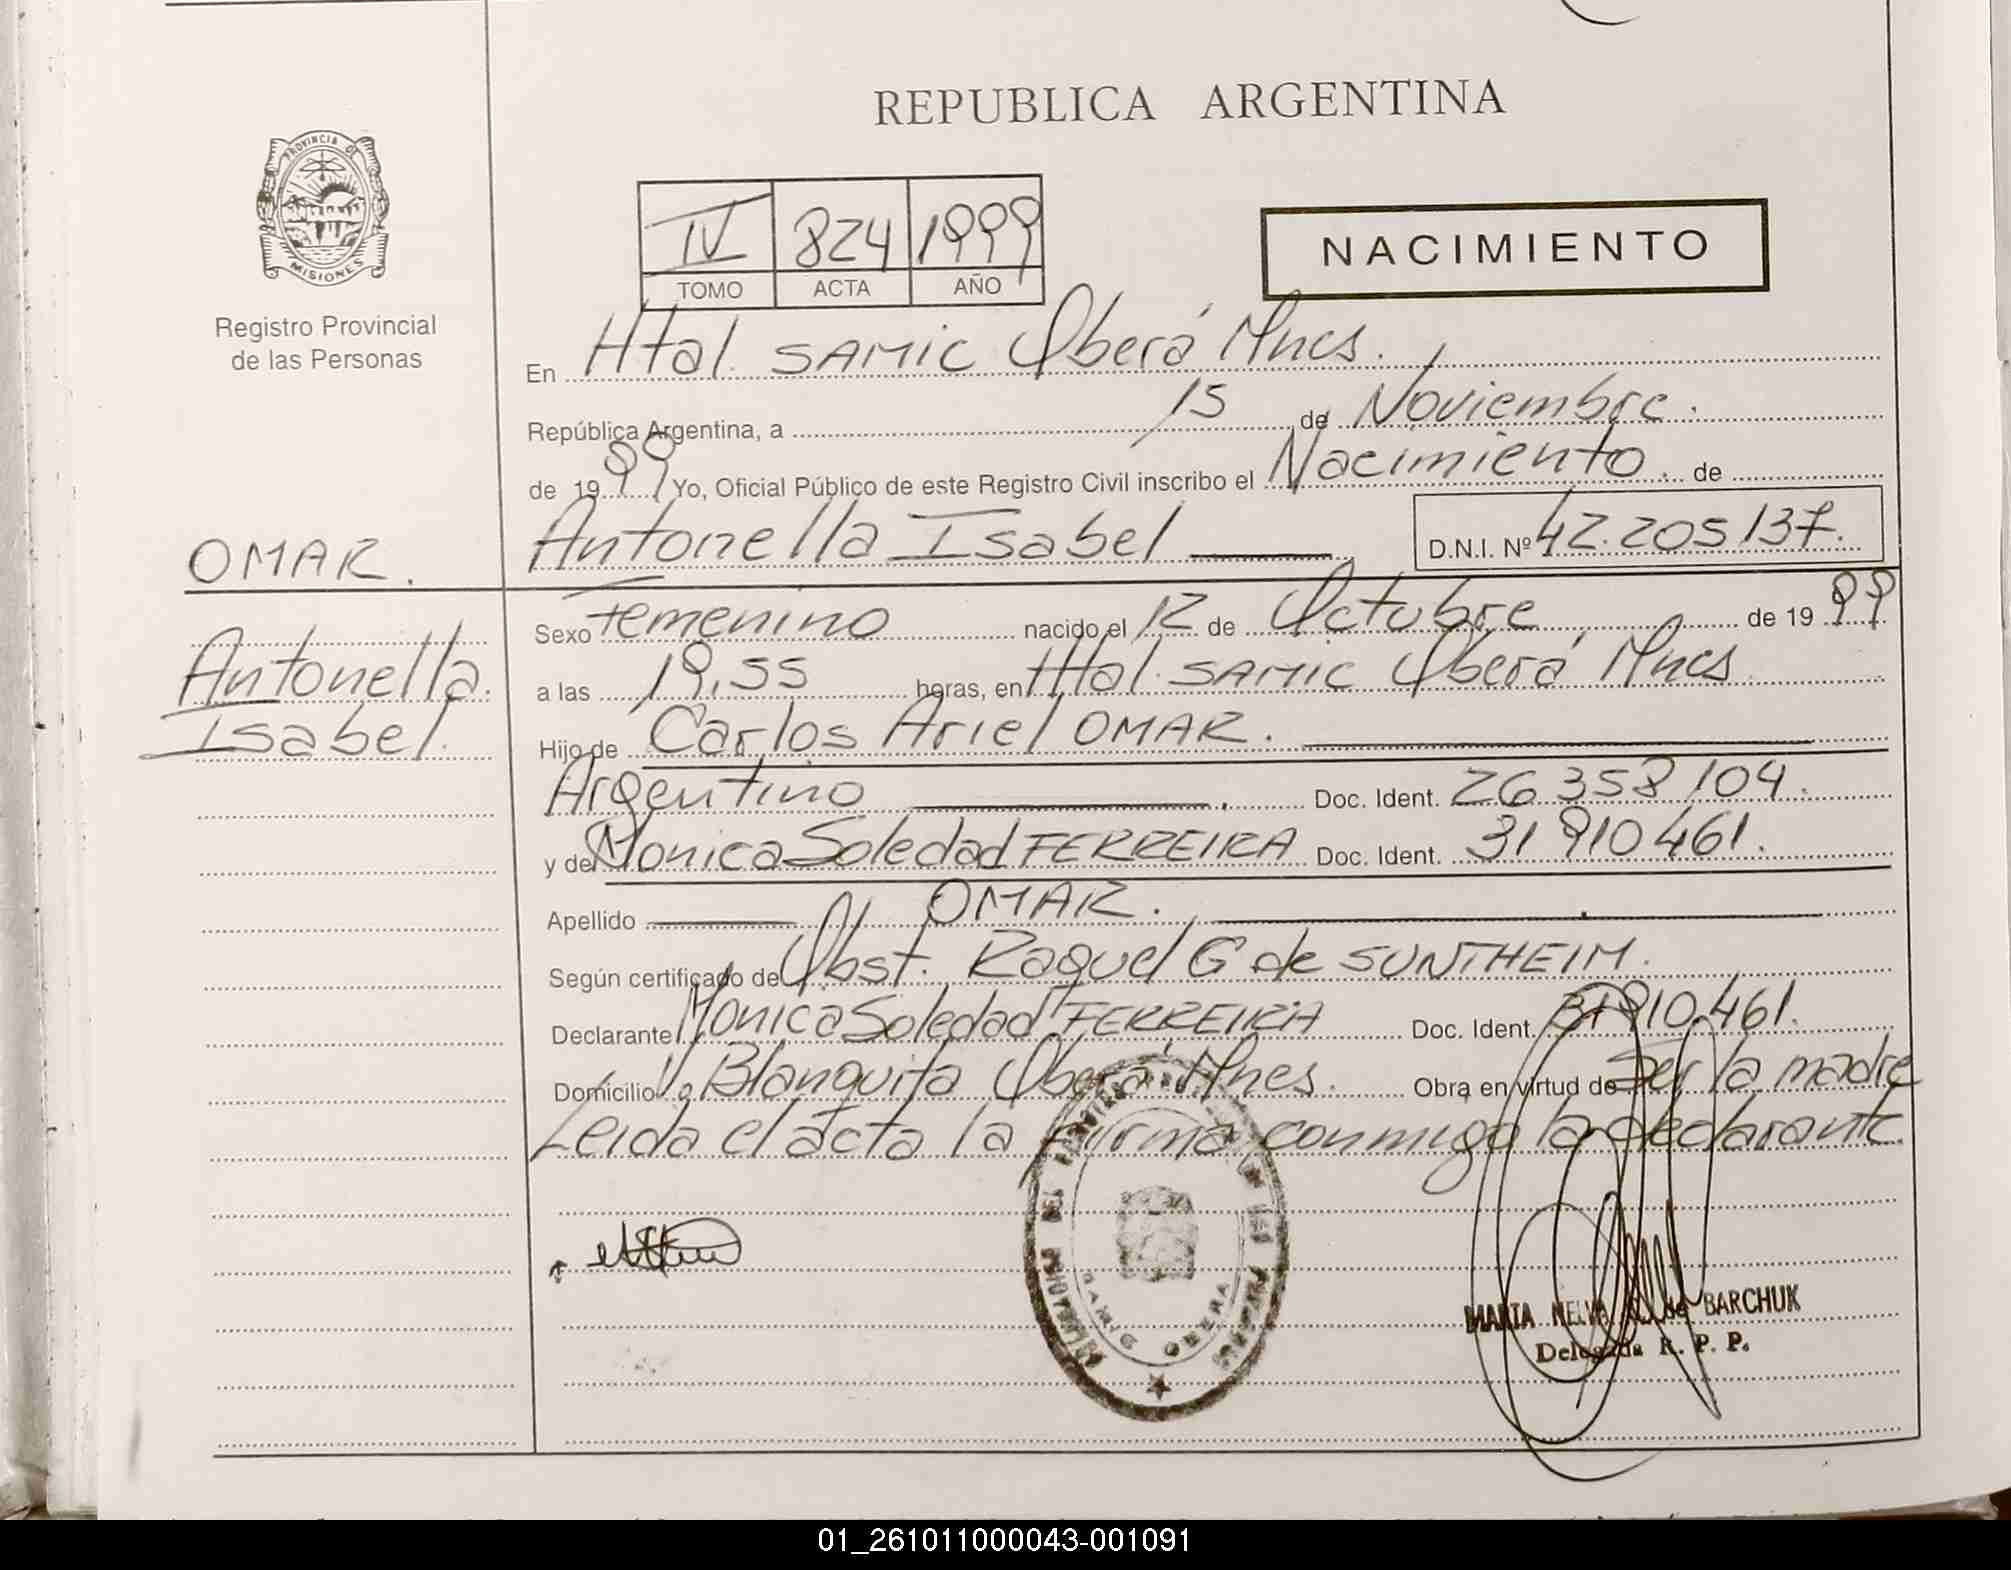 REPUBLICA ARGENTINA
PROVINCIA DE
MISIONES
Registro Provincial
de las Personas
IV 824 1999
TOMO ACTA AÑO
NACIMIENTO
En Htal. SAMIC Oberá Mnes.
República Argentina, a 15 de Noviembre.
de 1999 Yo, Oficial Público de este Registro Civil inscribo el Nacimiento de
Antonella Isabel D.N.I. Nº 42.205137.
OMAR.
Antonella
Isabel.
Sexo Femenino nacido el 12 de Octubre de 1999
a las 19,55 horas, en Htal. SAMIC Oberá Mnes
Hijo de Carlos Ariel OMAR.
Argentino Doc. Ident. 26358104.
y de Monica Soledad FERREIRA Doc. Ident. 31910461.
Apellido OMAR.
Según certificado de Obst. Raquel G de SUNTHEIM.
Declarante Monica Soledad FERREIRA Doc. Ident. 31910461.
Domicilio Vª Blanquita Oberá Mnes. Obra en virtud de Ser la madre
Leida el acta la firma conmigo la declarante.
SAMIC OBERA
MARTA NELVA de BARCHUK
Delegada R. P. P.
01_261011000043-001091